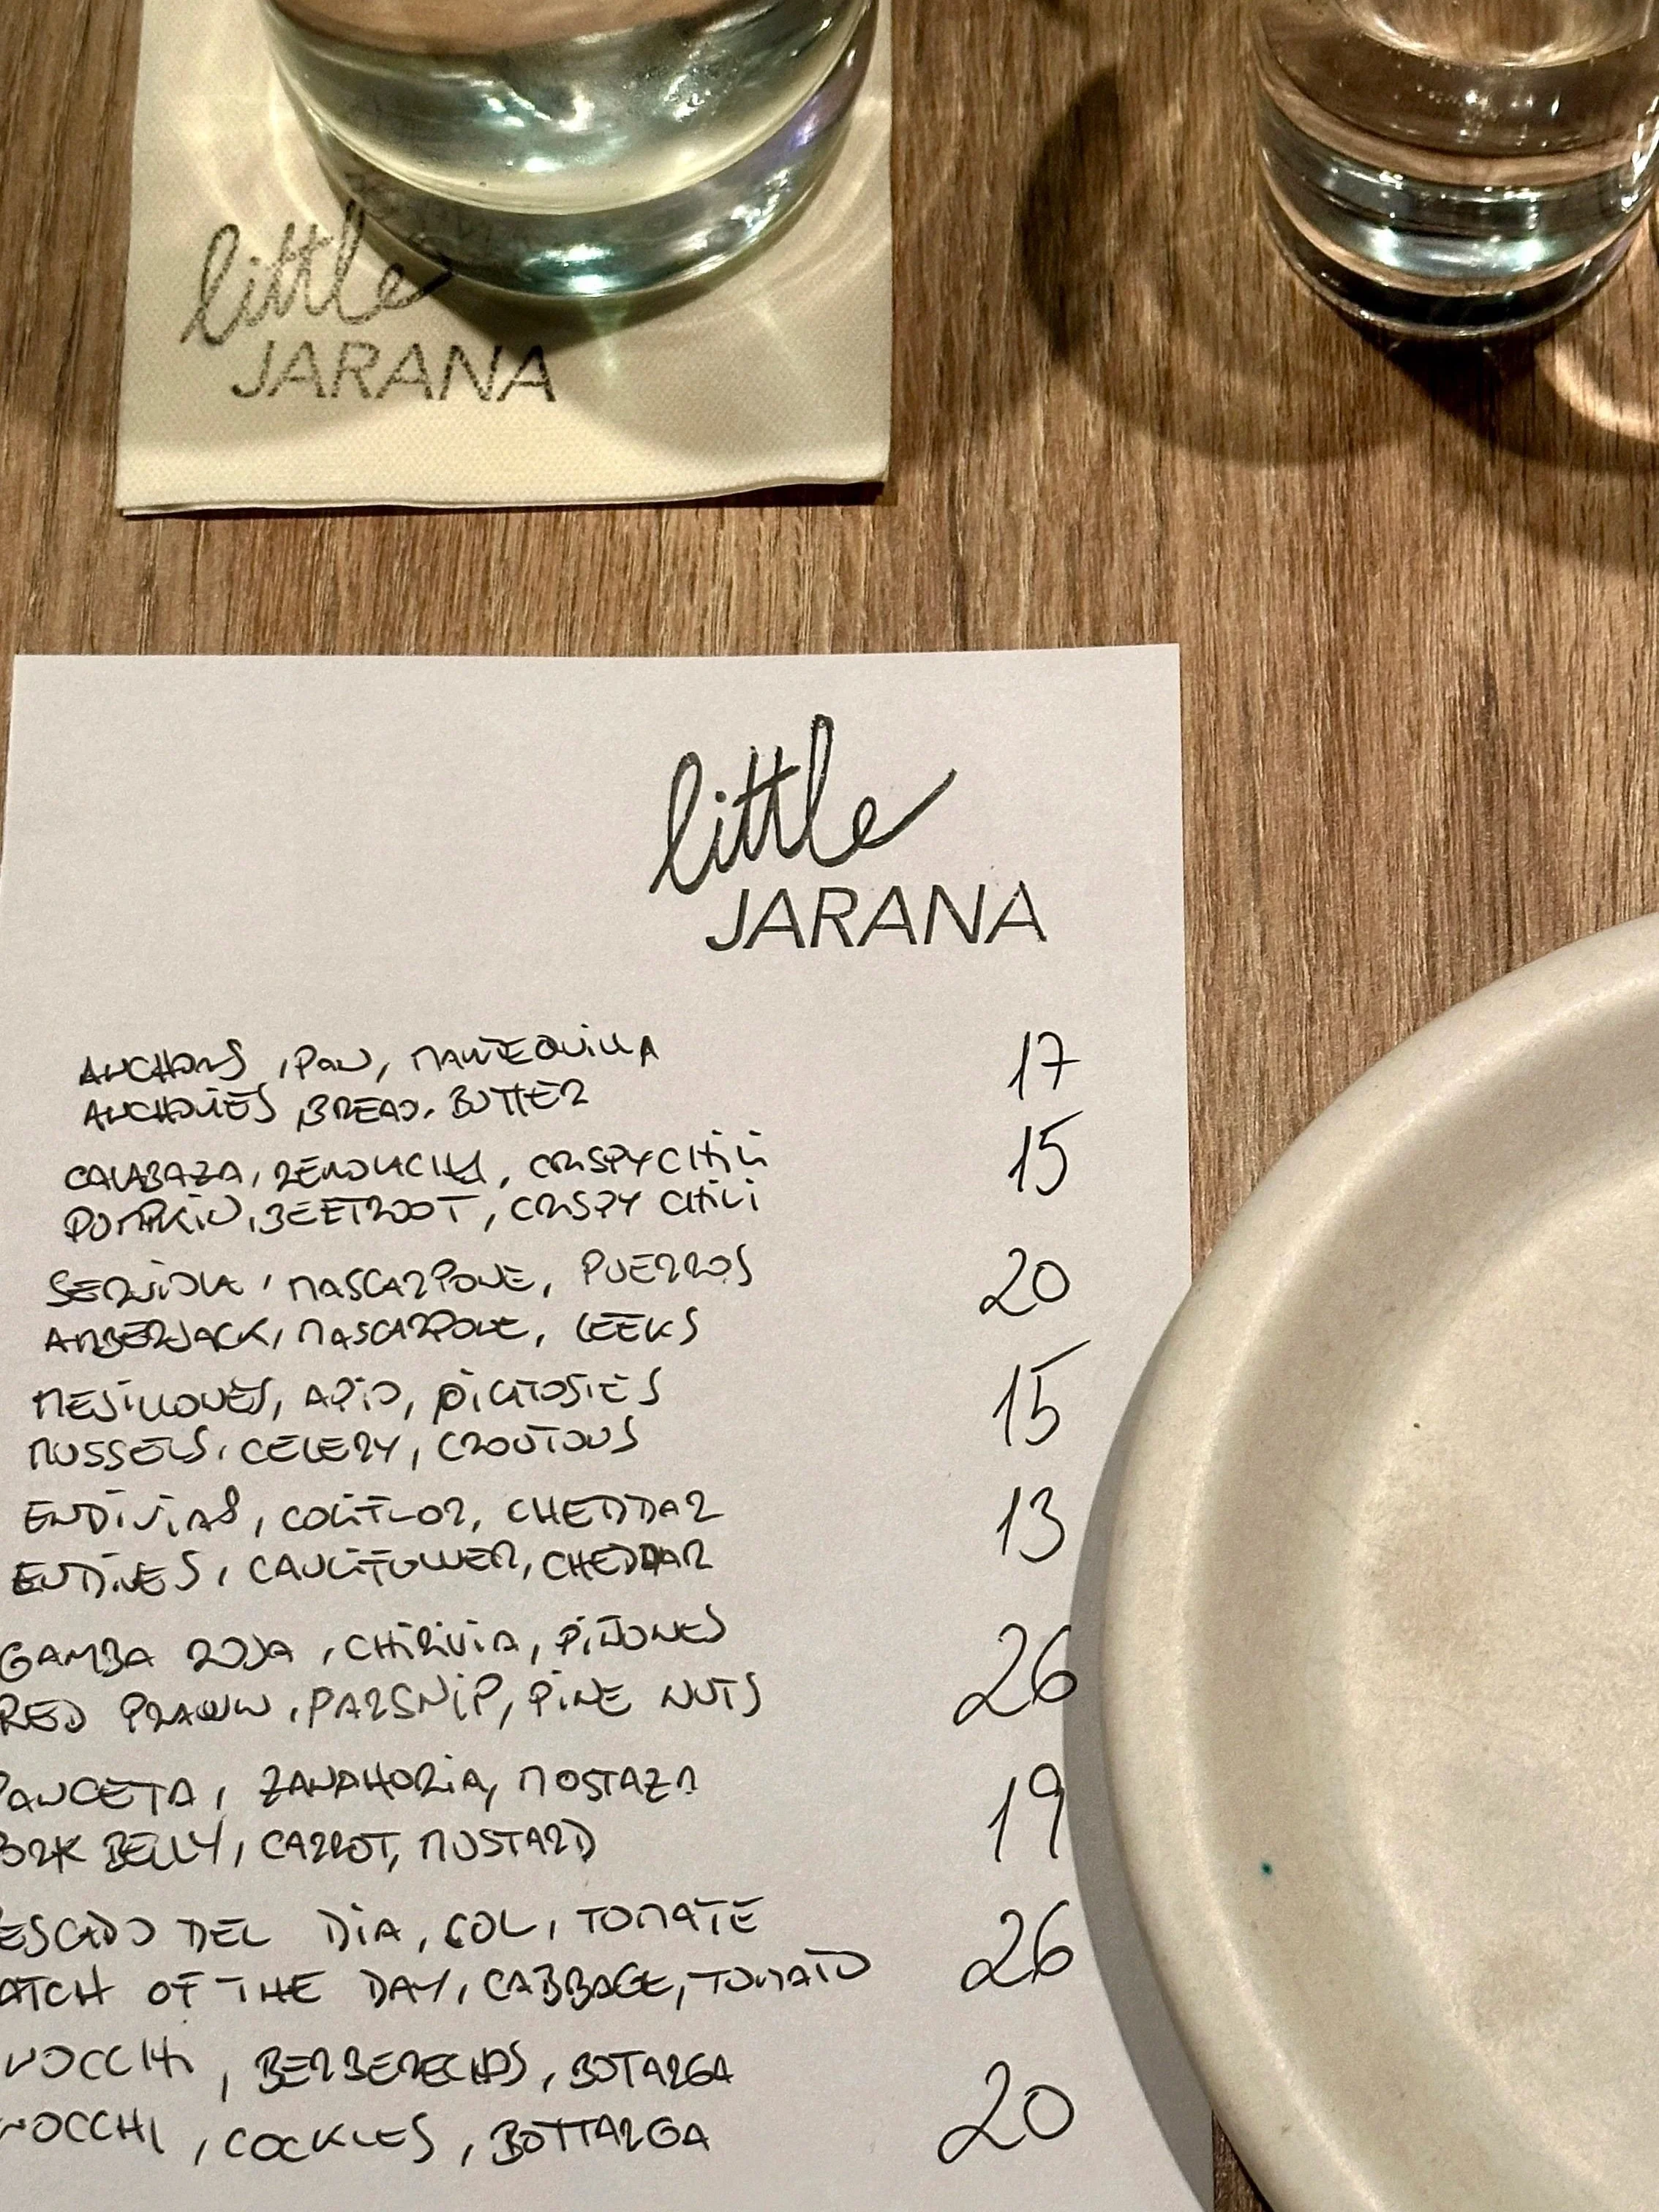 little
JARANA
little
JARANA
ANCHOAS, PAN, MANTEQUILLA 17
ANCHOVIES, BREAD, BUTTER
CALABAZA, REMOLACHA, CRISPY CHILI 15
PUMPKIN, BEETROOT, CRISPY CHILI
SERVIOLA, MASCARPONE, PUERROS 20
AMBERJACK, MASCARPONE, LEEKS
MEJILLONES, APIO, PICATOSTES 15
MUSSELS, CELERY, CROUTONS
ENDIVIAS, COLIFLOR, CHEDDAR 13
ENDIVES, CAULIFLOWER, CHEDDAR
GAMBA ROJA, CHIRIVIA, PIÑONES 26
RED PRAWN, PARSNIP, PINE NUTS
PANCETA, ZANAHORIA, MOSTAZA 19
ORK BELLY, CARROT, MUSTARD
ESCADO DEL DIA, COL, TOMATE 26
ATCH OF THE DAY, CABBAGE, TOMATO
NOCCHI, BERBERECHOS, BOTARGA 20
NOCCHI, COCKLES, BOTTARGA